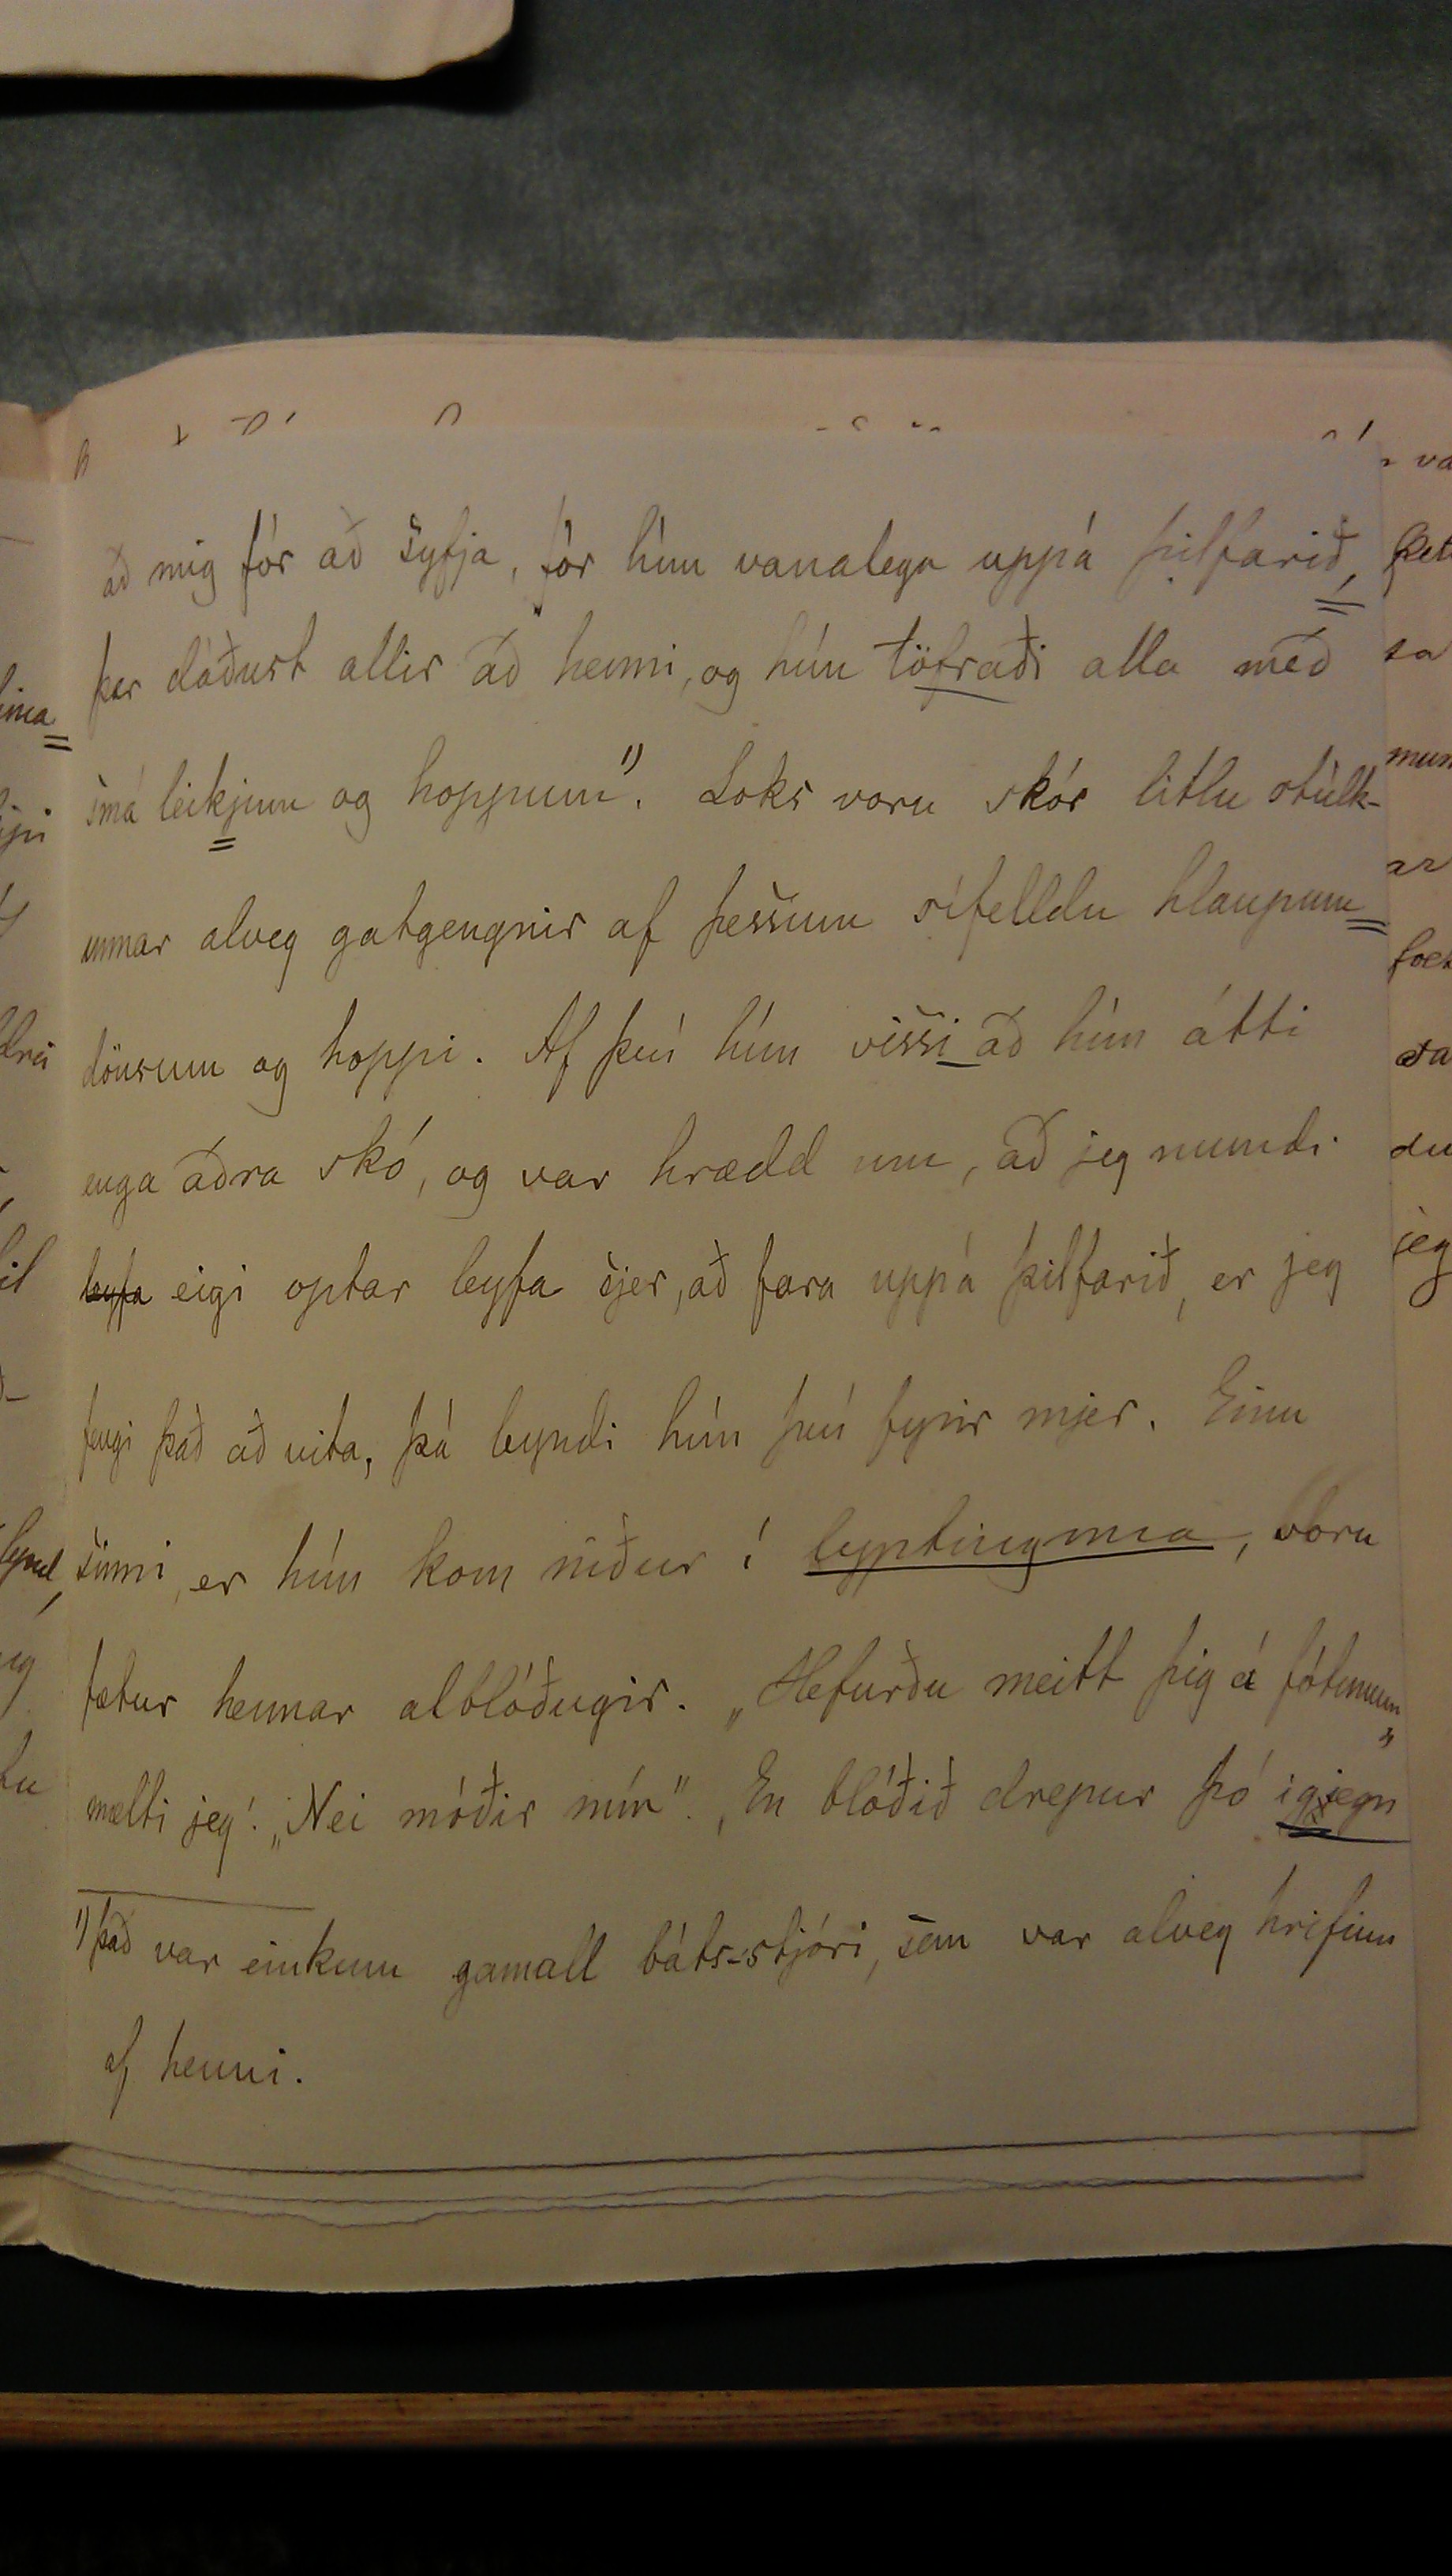 að mig fór að syfja, fór hún vanalega uppá þilfarið,
þar dáðust allir að henni, og hún töfraði alla með
smá leikjum og hoppum¹⁾. Loks voru skór litlu stúlk-
unnar alveg gatgengnir af þessum sífelldu hlaupum
dönsum og hoppi. Af því hún vissi að hún átti
enga aðra skó, og var hrædd um, að jeg mundi
leyfa eigi optar leyfa sjer, að fara uppá þilfarið, er jeg
fengi það að vita, þá leyndi hún því fyrir mjer. Einu
sinni, er hún kom niður í lyptingunna, voru
fætur hennar alblóðugir. „Hefurðu meitt þig á fótunum"
mælti jeg: „Nei móðir mín". „En blóðið drepur þó igjegn
¹⁾ það var einkum gamall báts-stjóri, sem var alveg hrifinn
af henni.